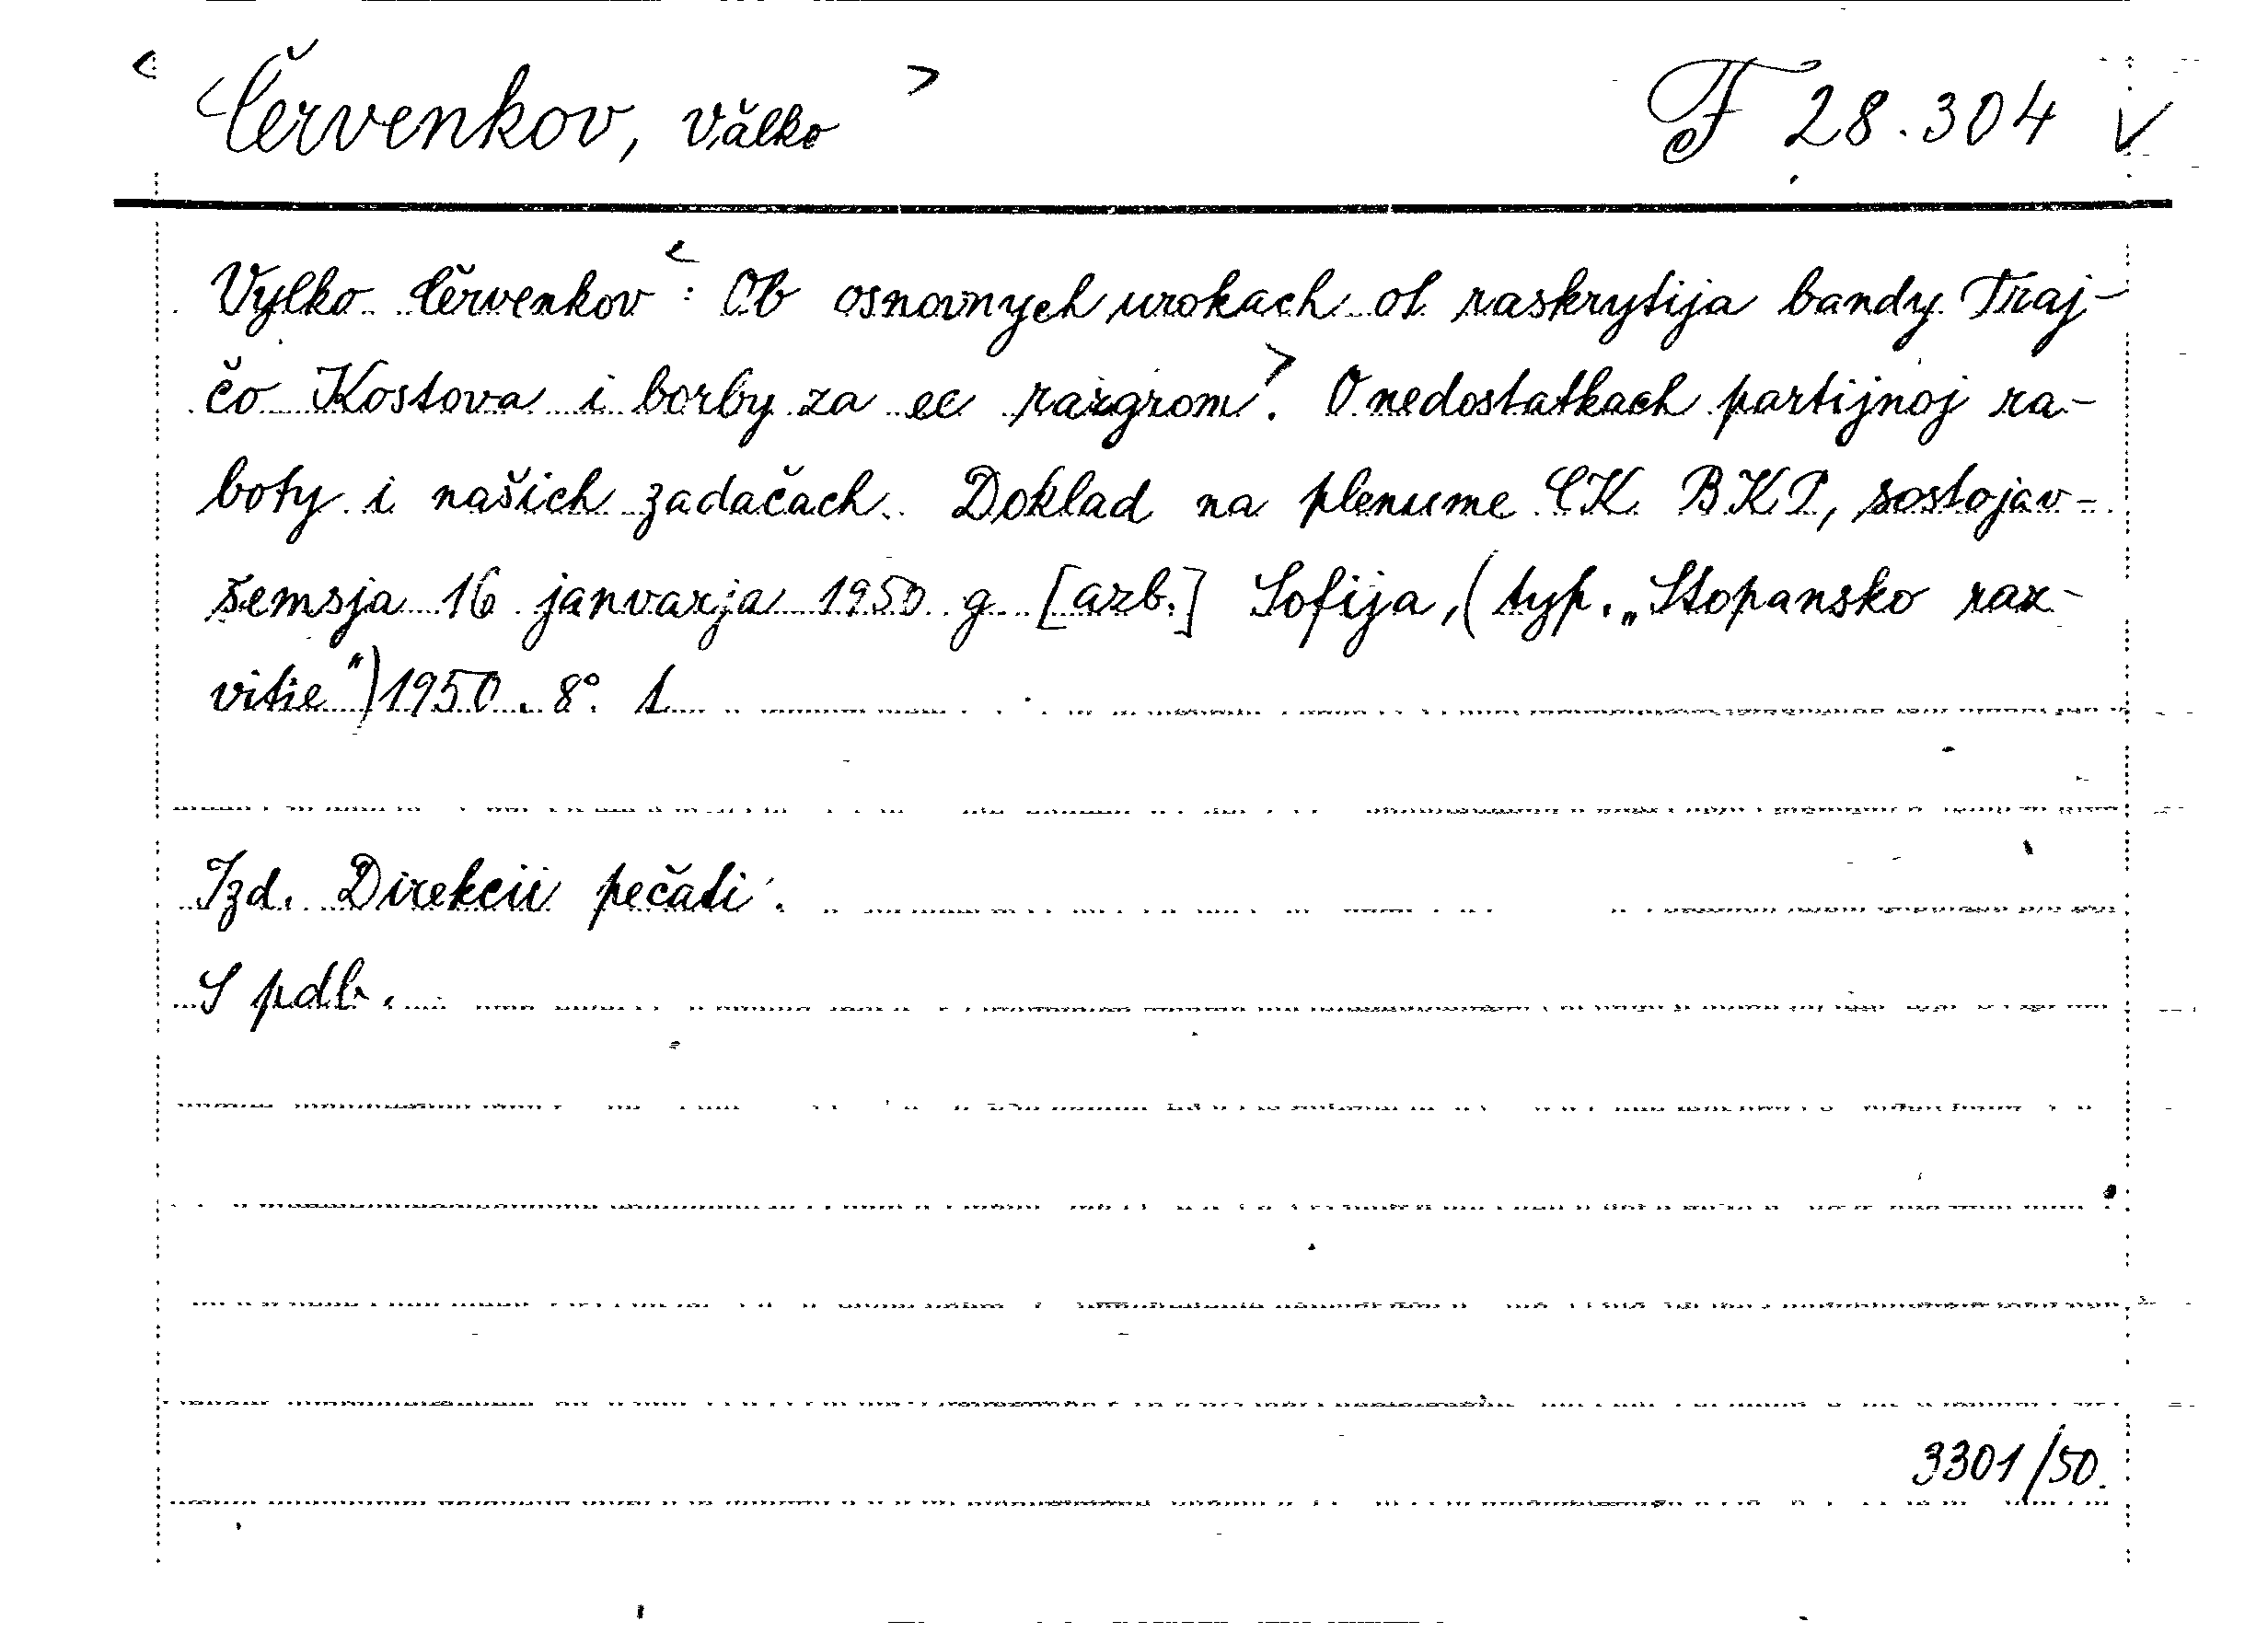 < Červenkov, Vălko > F 28.304 ✓
Vylko Červenkov: < Ob osnovnych urokach ot raskrytija bandy Traj-
čo Kostova i borby za ee razgrom>. O nedostatkach partijnoj ra-
boty i našich zadačach. Doklad na plenume CK BKP, sostojav-
šemsja 16 janvarja 1950 g. [azb.] Sofija, (typ. „Stopansko raz-
vitie") 1950. 8°. 1
Izd. Direkcii pečati.
S pdb.
3301/50.